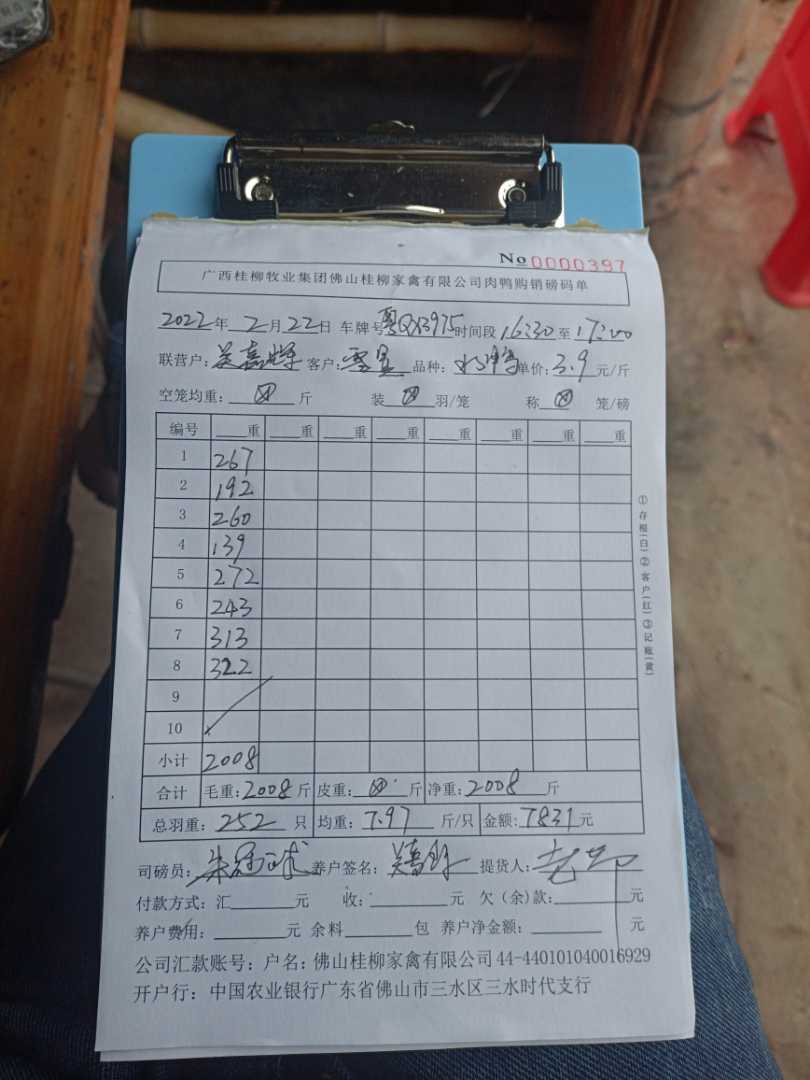 No 0000397
广西桂柳牧业集团佛山桂柳家禽有限公司肉鸭购销磅码单
2022年 2月 22日 车牌号 粤QX3975 时间段 16:30 至 17:00
联营户: 吴嘉辉 客户: 品种: 单价: 3.9 元/斤
空笼均重: 斤 装 羽/笼 称 笼/磅
编号 重 重 重 重 重 重 重 重
1 267
2 192
3 260
4 139
5 272
6 243
7 313
8 322
9
10
小计 2008
合计 毛重: 2008 斤 皮重: 斤 净重: 2008 斤
总羽重: 252 只 均重: 7.97 斤/只 金额: 7831 元
司磅员: 养户签名: 提货人:
付款方式: 汇 元 收: 元 欠(余)款: 元
养户费用: 元 余料 包 养户净金额: 元
公司汇款账号: 户名: 佛山桂柳家禽有限公司 44-440101040016929
开户行: 中国农业银行广东省佛山市三水区三水时代支行
①存根(白)②客户(红)③记账(黄)